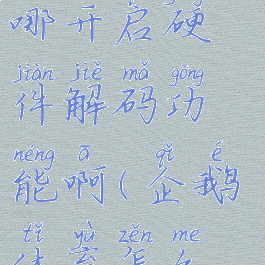 哪开启硬
jiàn jiě mǎ gōng
件解码功
néng ā qǐ é
能啊(企鹅
tǐ yù zěn me
体育怎么